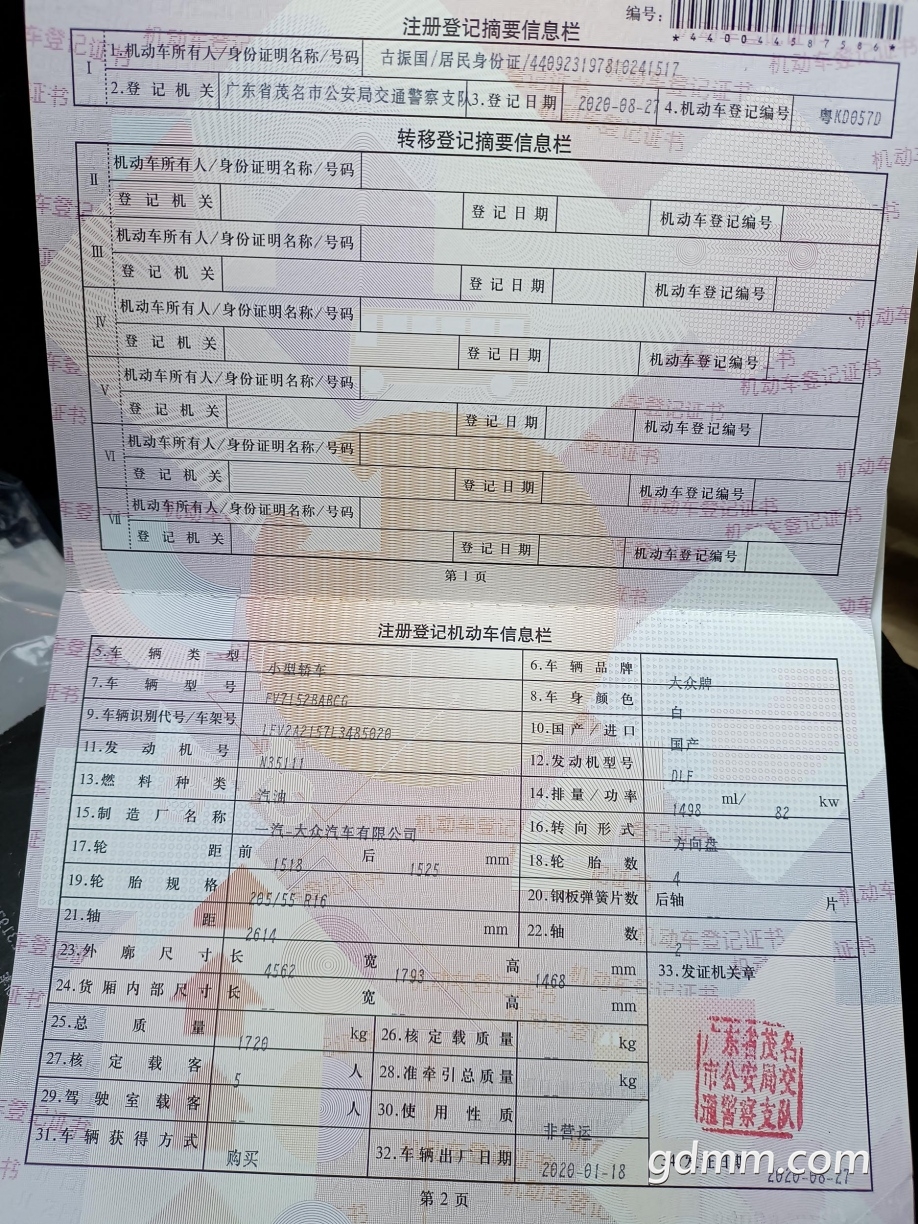 注册登记摘要信息栏
编号：
*440044587586*
Ⅰ 1.机动车所有人/身份证明名称/号码 古振国/居民身份证/440923197810241517
2.登记机关 广东省茂名市公安局交通警察支队 3.登记日期 2020-08-27 4.机动车登记编号 粤KD057D
转移登记摘要信息栏
Ⅱ 机动车所有人/身份证明名称/号码
登记机关 登记日期 机动车登记编号
Ⅲ 机动车所有人/身份证明名称/号码
登记机关 登记日期 机动车登记编号
Ⅳ 机动车所有人/身份证明名称/号码
登记机关 登记日期 机动车登记编号
Ⅴ 机动车所有人/身份证明名称/号码
登记机关 登记日期 机动车登记编号
Ⅵ 机动车所有人/身份证明名称/号码
登记机关 登记日期 机动车登记编号
Ⅶ 机动车所有人/身份证明名称/号码
登记机关 登记日期 机动车登记编号
第1页
注册登记机动车信息栏
5.车辆类型 小型轿车 6.车辆品牌 大众牌
7.车辆型号 FV7152BABCG 8.车身颜色 白
9.车辆识别代号/车架号 LFV2A2157L3485020 10.国产/进口 国产
11.发动机号 N35111 12.发动机型号 DLF
13.燃料种类 汽油 14.排量/功率 1498 ml/ 82 kw
15.制造厂名称 一汽-大众汽车有限公司 16.转向形式 方向盘
17.轮距 前 1518 后 1525 mm 18.轮胎数 4
19.轮胎规格 205/55 R16 20.钢板弹簧片数 后轴 -- 片
21.轴距 2614 mm 22.轴数 2
23.外廓尺寸 长 4562 宽 1793 高 1468 mm 33.发证机关章
24.货厢内部尺寸 长 -- 宽 -- 高 -- mm
25.总质量 1720 kg 26.核定载质量 -- kg
27.核定载客 5 人 28.准牵引总质量 -- kg
29.驾驶室载客 -- 人 30.使用性质 非营运
31.车辆获得方式 购买 32.车辆出厂日期 2020-01-18 2020-08-27
广东省茂名
市公安局交
通警察支队
gdmm.com
第2页